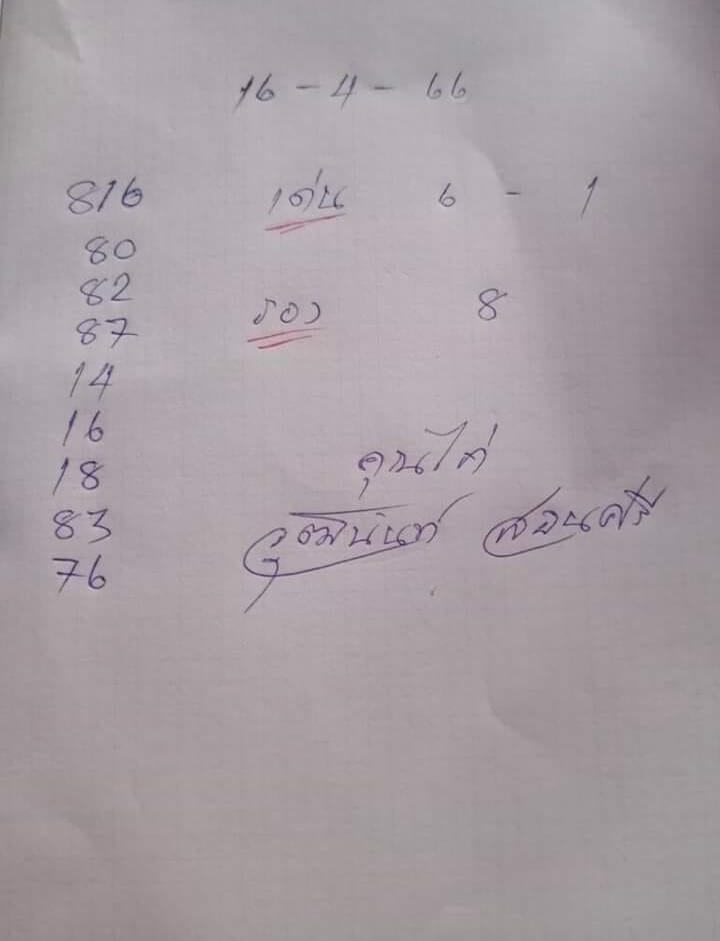 16 - 4 - 66
816 เด่น 6 - 1
80
82
87 รอง 8
14
16
18 คุณไก่
83 วุฒินันท์ สอนศรี
76